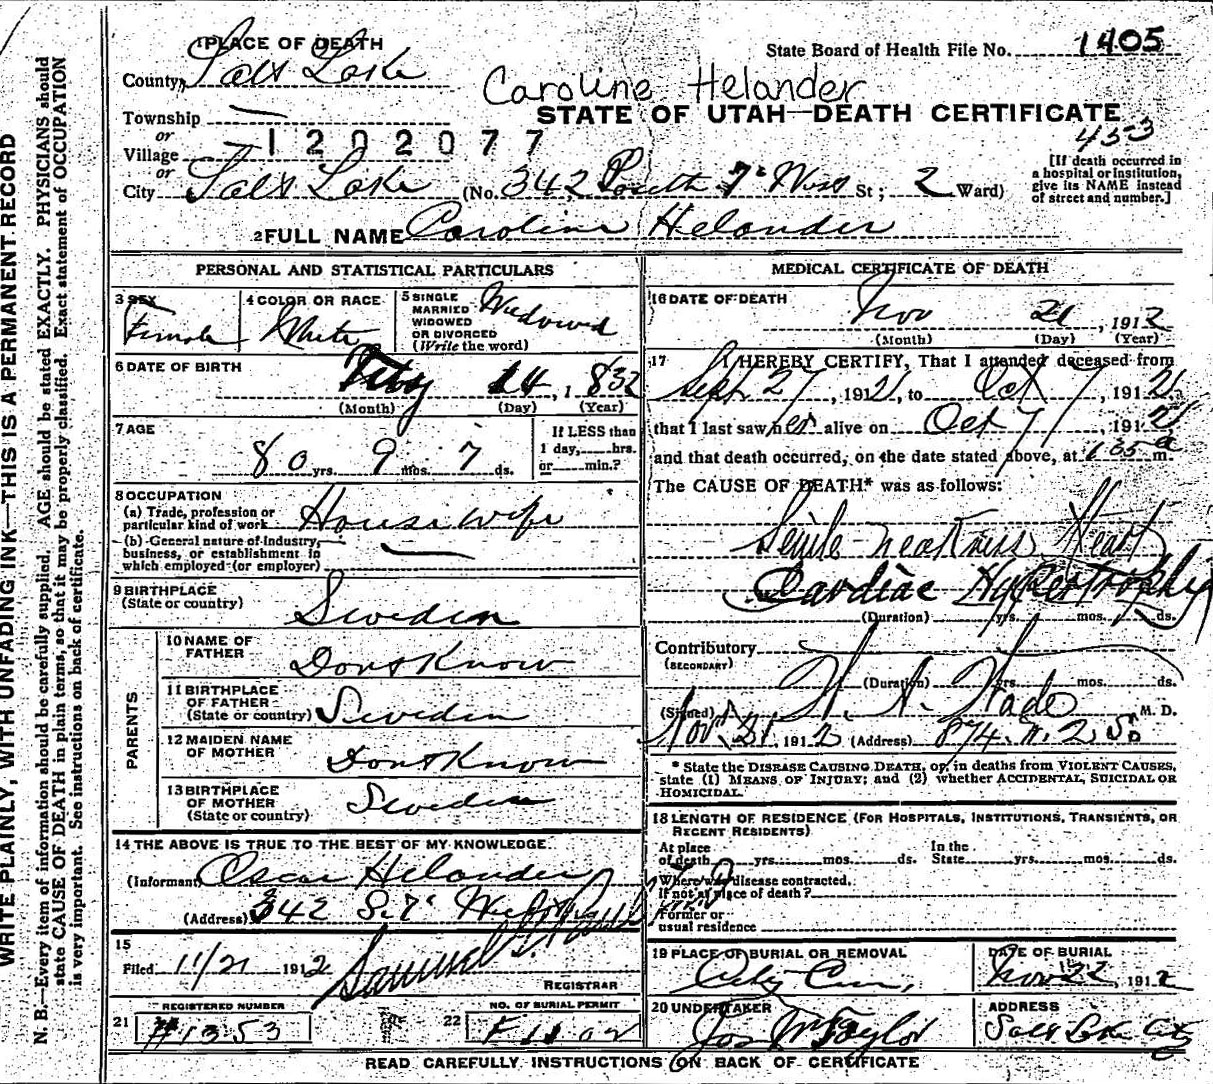 WRITE PLAINLY, WITH UNFADING INK—THIS IS A PERMANENT RECORD
N. B.—Every item of information should be carefully supplied. AGE should be stated EXACTLY. PHYSICIANS should
state CAUSE OF DEATH in plain terms, so that it may be properly classified. Exact statement of OCCUPATION
is very important. See instructions on back of certificate.
1 PLACE OF DEATH
State Board of Health File No. 1405
County Salt Lake
Caroline Helander
STATE OF UTAH—DEATH CERTIFICATE
Township —
453
or
Village 1202077
or
City Salt Lake (No. 342 South 7th West St; 2 Ward)
[If death occurred in
a hospital or institution,
give its NAME instead
of street and number.]
2 FULL NAME Caroline Helander
PERSONAL AND STATISTICAL PARTICULARS
3 SEX Female
4 COLOR OR RACE White
5 SINGLE
MARRIED
WIDOWED
OR DIVORCED
(Write the word) Widowed
6 DATE OF BIRTH Feby 14, 1832
(Month) (Day) (Year)
7 AGE
80 yrs. 9 mos. 7 ds.
If LESS than
1 day, hrs.
or min.?
8 OCCUPATION
(a) Trade, profession or
particular kind of work House wife
(b) General nature of industry,
business, or establishment in
which employed (or employer) —
9 BIRTHPLACE
(State or country) Sweden
PARENTS
10 NAME OF
FATHER Dont Know
11 BIRTHPLACE
OF FATHER
(State or country) Sweden
12 MAIDEN NAME
OF MOTHER Dont Know
13 BIRTHPLACE
OF MOTHER
(State or country) Sweden
14 THE ABOVE IS TRUE TO THE BEST OF MY KNOWLEDGE.
(Informant) Oscar Helander
(Address) 342 So. 7th West
15
Filed 11/21 1912 Samuel G. Paul
REGISTRAR
REGISTERED NUMBER
21 #1353
NO. OF BURIAL PERMIT
22 F1102
MEDICAL CERTIFICATE OF DEATH
16 DATE OF DEATH
Nov 21, 1912
(Month) (Day) (Year)
17 I HEREBY CERTIFY, That I attended deceased from
Sept 27, 1912, to Oct 7, 1912
that I last saw her alive on Oct 7, 1912
and that death occurred, on the date stated above, at m.
The CAUSE OF DEATH* was as follows:
Senile weakness Heart
Cardiac Hypertrophy
(Duration) yrs. mos. ds.
Contributory
(SECONDARY)
(Duration) yrs. mos. ds.
(Signed) Wade M. D.
Nov. 21 1912 (Address) 874
* State the DISEASE CAUSING DEATH, or, in deaths from VIOLENT CAUSES,
state (1) MEANS OF INJURY; and (2) whether ACCIDENTAL, SUICIDAL OR
HOMICIDAL.
18 LENGTH OF RESIDENCE (FOR HOSPITALS, INSTITUTIONS, TRANSIENTS, OR
RECENT RESIDENTS)
At place
of death yrs. mos. ds.
In the
State yrs. mos. ds.
Where was disease contracted,
If not at place of death?
Former or
usual residence
19 PLACE OF BURIAL OR REMOVAL
City Cem,
DATE OF BURIAL
Nov 22 1912
20 UNDERTAKER
Jos Wm Taylor
ADDRESS
Salt Lake City
READ CAREFULLY INSTRUCTIONS ON BACK OF CERTIFICATE